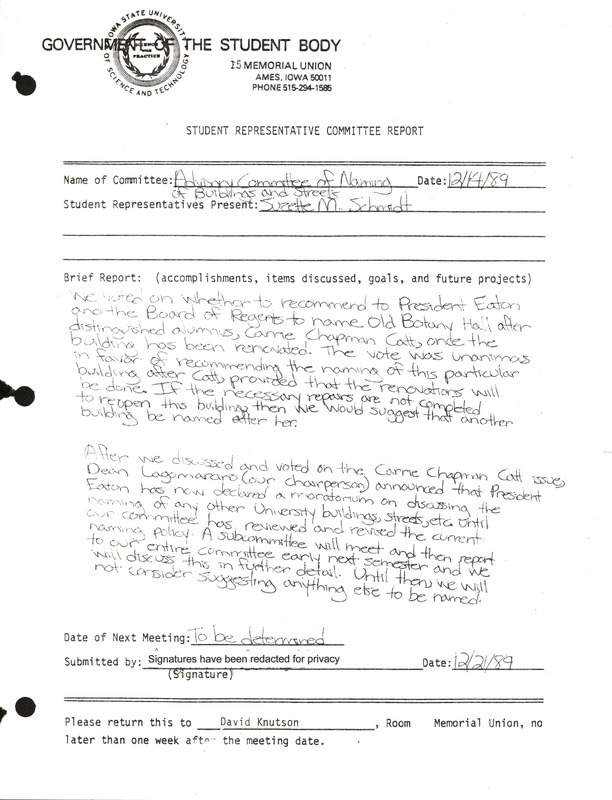 IOWA STATE UNIVERSITY
OF SCIENCE AND TECHNOLOGY
SCIENCE
WITH
PRACTICE
GOVERNMENT OF THE STUDENT BODY
15 MEMORIAL UNION
AMES, IOWA 50011
PHONE 515-294-1585
STUDENT REPRESENTATIVE COMMITTEE REPORT
Name of Committee: Advisory Committee of Naming Date: 12/14/89
of Buildings and Streets
Student Representatives Present: Suzette M. Schmidt
Brief Report: (accomplishments, items discussed, goals, and future projects)
We voted on whether to recommend to President Eaton
and the Board of Regents to name Old Botany Hall after
distinguished alumnus, Carrie Chapman Catt, once the
building has been renovated. The vote was unanimous
in favor of recommending the naming of this particular
building after Catt, provided that the renovations will
be done. If the necessary repairs are not completed
to reopen this building then we would suggest that another
building be named after her.
After we discussed and voted on the Carrie Chapman Catt issue,
Dean Lagomarcino (our chairperson) announced that President
Eaton has now declared a moratorium on discussing the
naming of any other University buildings, streets, etc. until
our committee has reviewed and revised the current
naming policy. A subcommittee will meet and then report
to our entire committee early next semester and we
will discuss this in further detail. Until then, we will
not consider suggesting anything else to be named.
Date of Next Meeting: To be determined
Submitted by: Signatures have been redacted for privacy Date: 12/21/89
(Signature)
Please return this to David Knutson, Room Memorial Union, no
later than one week after the meeting date.